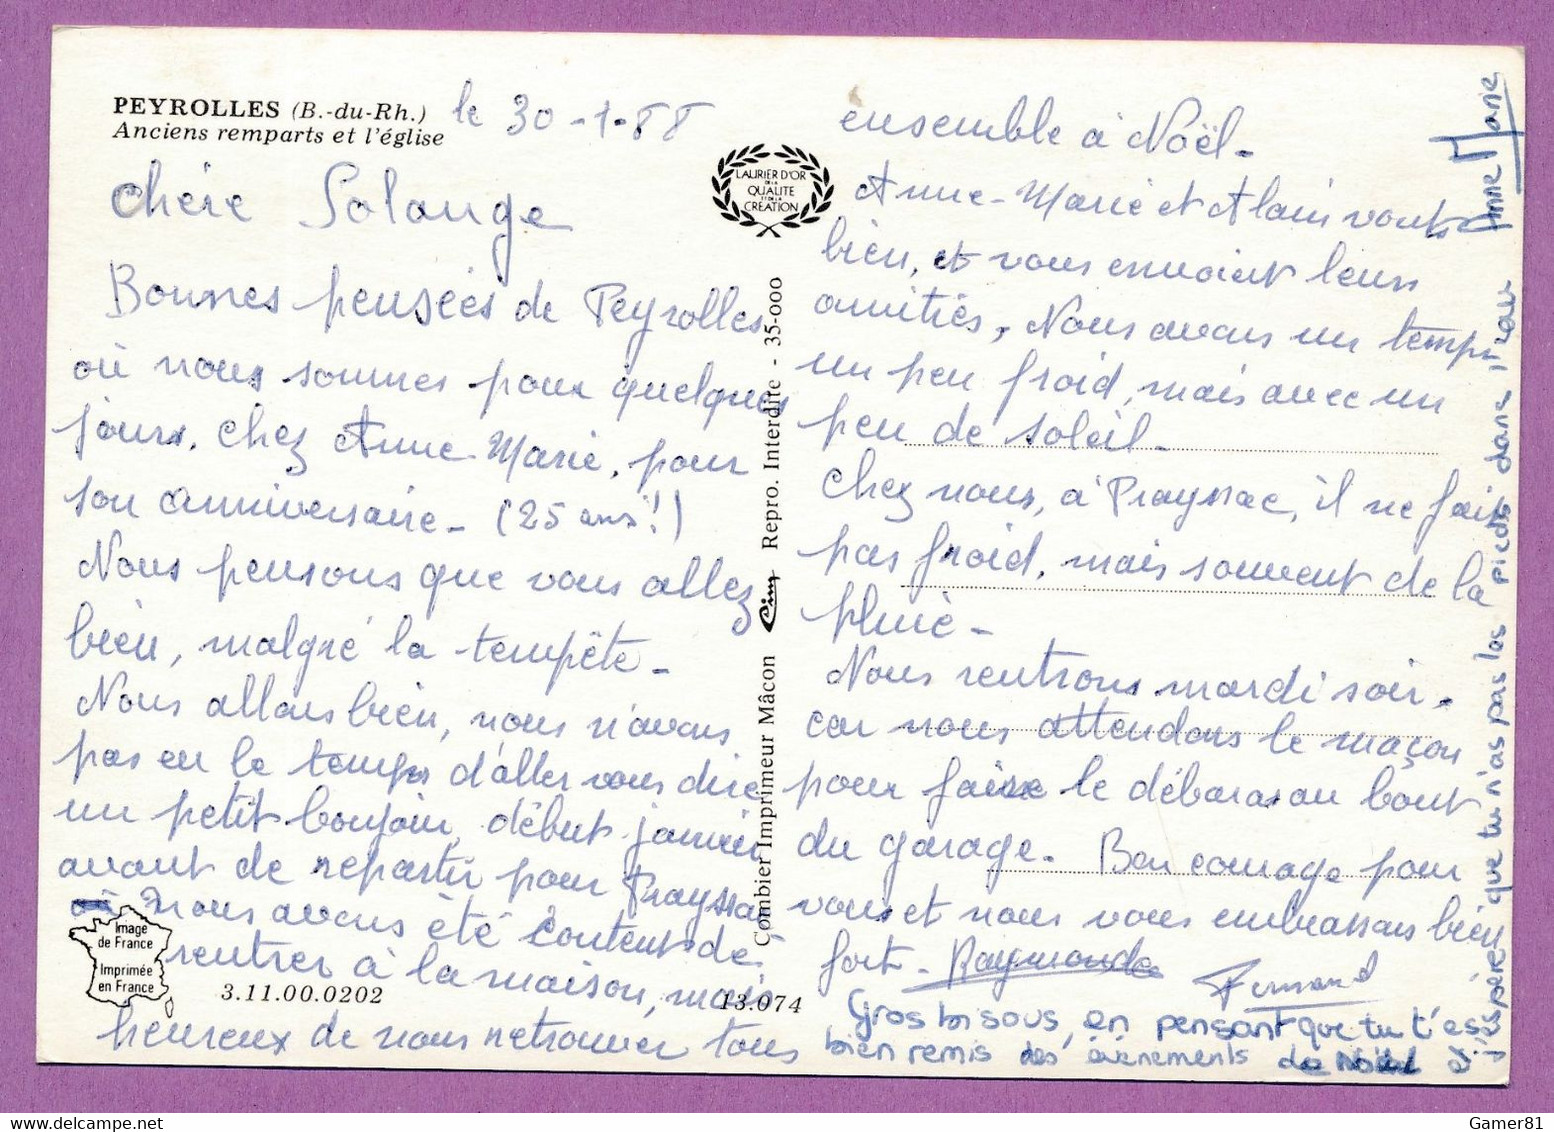 PEYROLLES (B.-du-Rh.)
Anciens remparts et l'église
le 30-1-88
Chère Solange
Bonnes pensées de Peyrolles
où nous sommes pour quelques
jours, chez Anne-Marie, pour
son anniversaire - (25 ans!)
Nous pensons que vous allez
bien, malgré la tempête -
Nous allons bien, nous n'avons
pas eu le temps d'aller vous dire
un petit bonjour, début janvier
avant de repartir pour Prayssac
nous avons été contents de
rentrer à la maison, mais
heureux de nous retrouver tous
Image
de France
Imprimée
en France
3.11.00.0202
13.074
LAURIER D'OR
DE LA
QUALITE
ET DE LA
CREATION
Combier Imprimeur Mâcon Cim Repro. Interdite - 35-000
ensemble à Noël -
Anne-Marie et Alain vont
bien, et vous envoient leurs
amitiés, Nous avons un temps
un peu froid, mais avec un
peu de soleil -
Chez nous, à Prayssac, il ne fait
pas froid, mais souvent de la
pluie -
Nous rentrons mardi soir -
car nous attendons le maçon
pour faire le débaras au bout
du garage - Bon courage pour
vous et nous vous embrassons bien
fort - Raymonde Fernand
Gros bisous, en pensant que tu t'es
bien remis des évènements de Noël
J'espère que tu n'as pas les pieds dans l'eau
Anne Marie
Gamer81